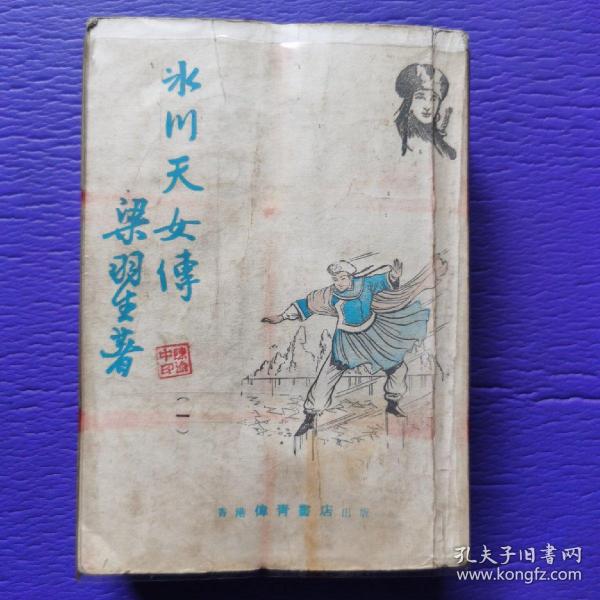 冰川天女傳
梁羽生著
陳瀚
中印
(一)
香港偉青書店出版
孔夫子旧书网
www.kongfz.com